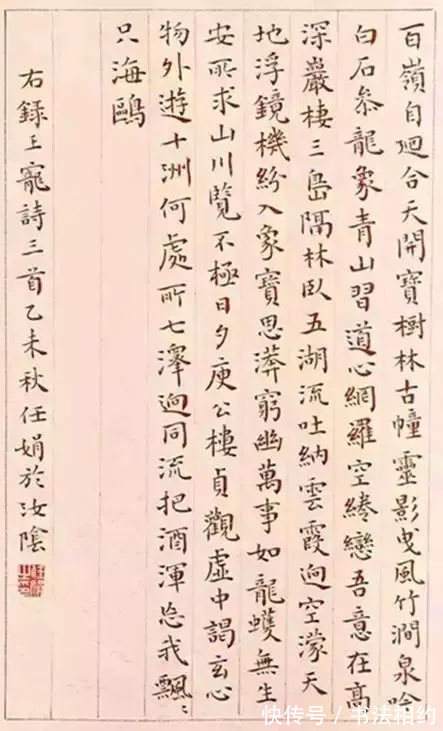 百嶺自迴合天開寶樹林古幢靈影曳風竹澗泉吟
白石參龍象青山習道心網羅空綣戀吾意在高
深巖棲三島隔林臥五湖流吐納雲霞迥空濛天
地浮鏡機紛入象寶思漭窮幽萬事如龍蠖無生
安所求山川覽不極日夕庾公樓貞觀虛中謁玄心
物外遊十洲何處所七澤迥同流把酒渾忘我飄〻
只海鷗
右錄王寵詩三首乙未秋任娟於汝陰
快传号/书法相约